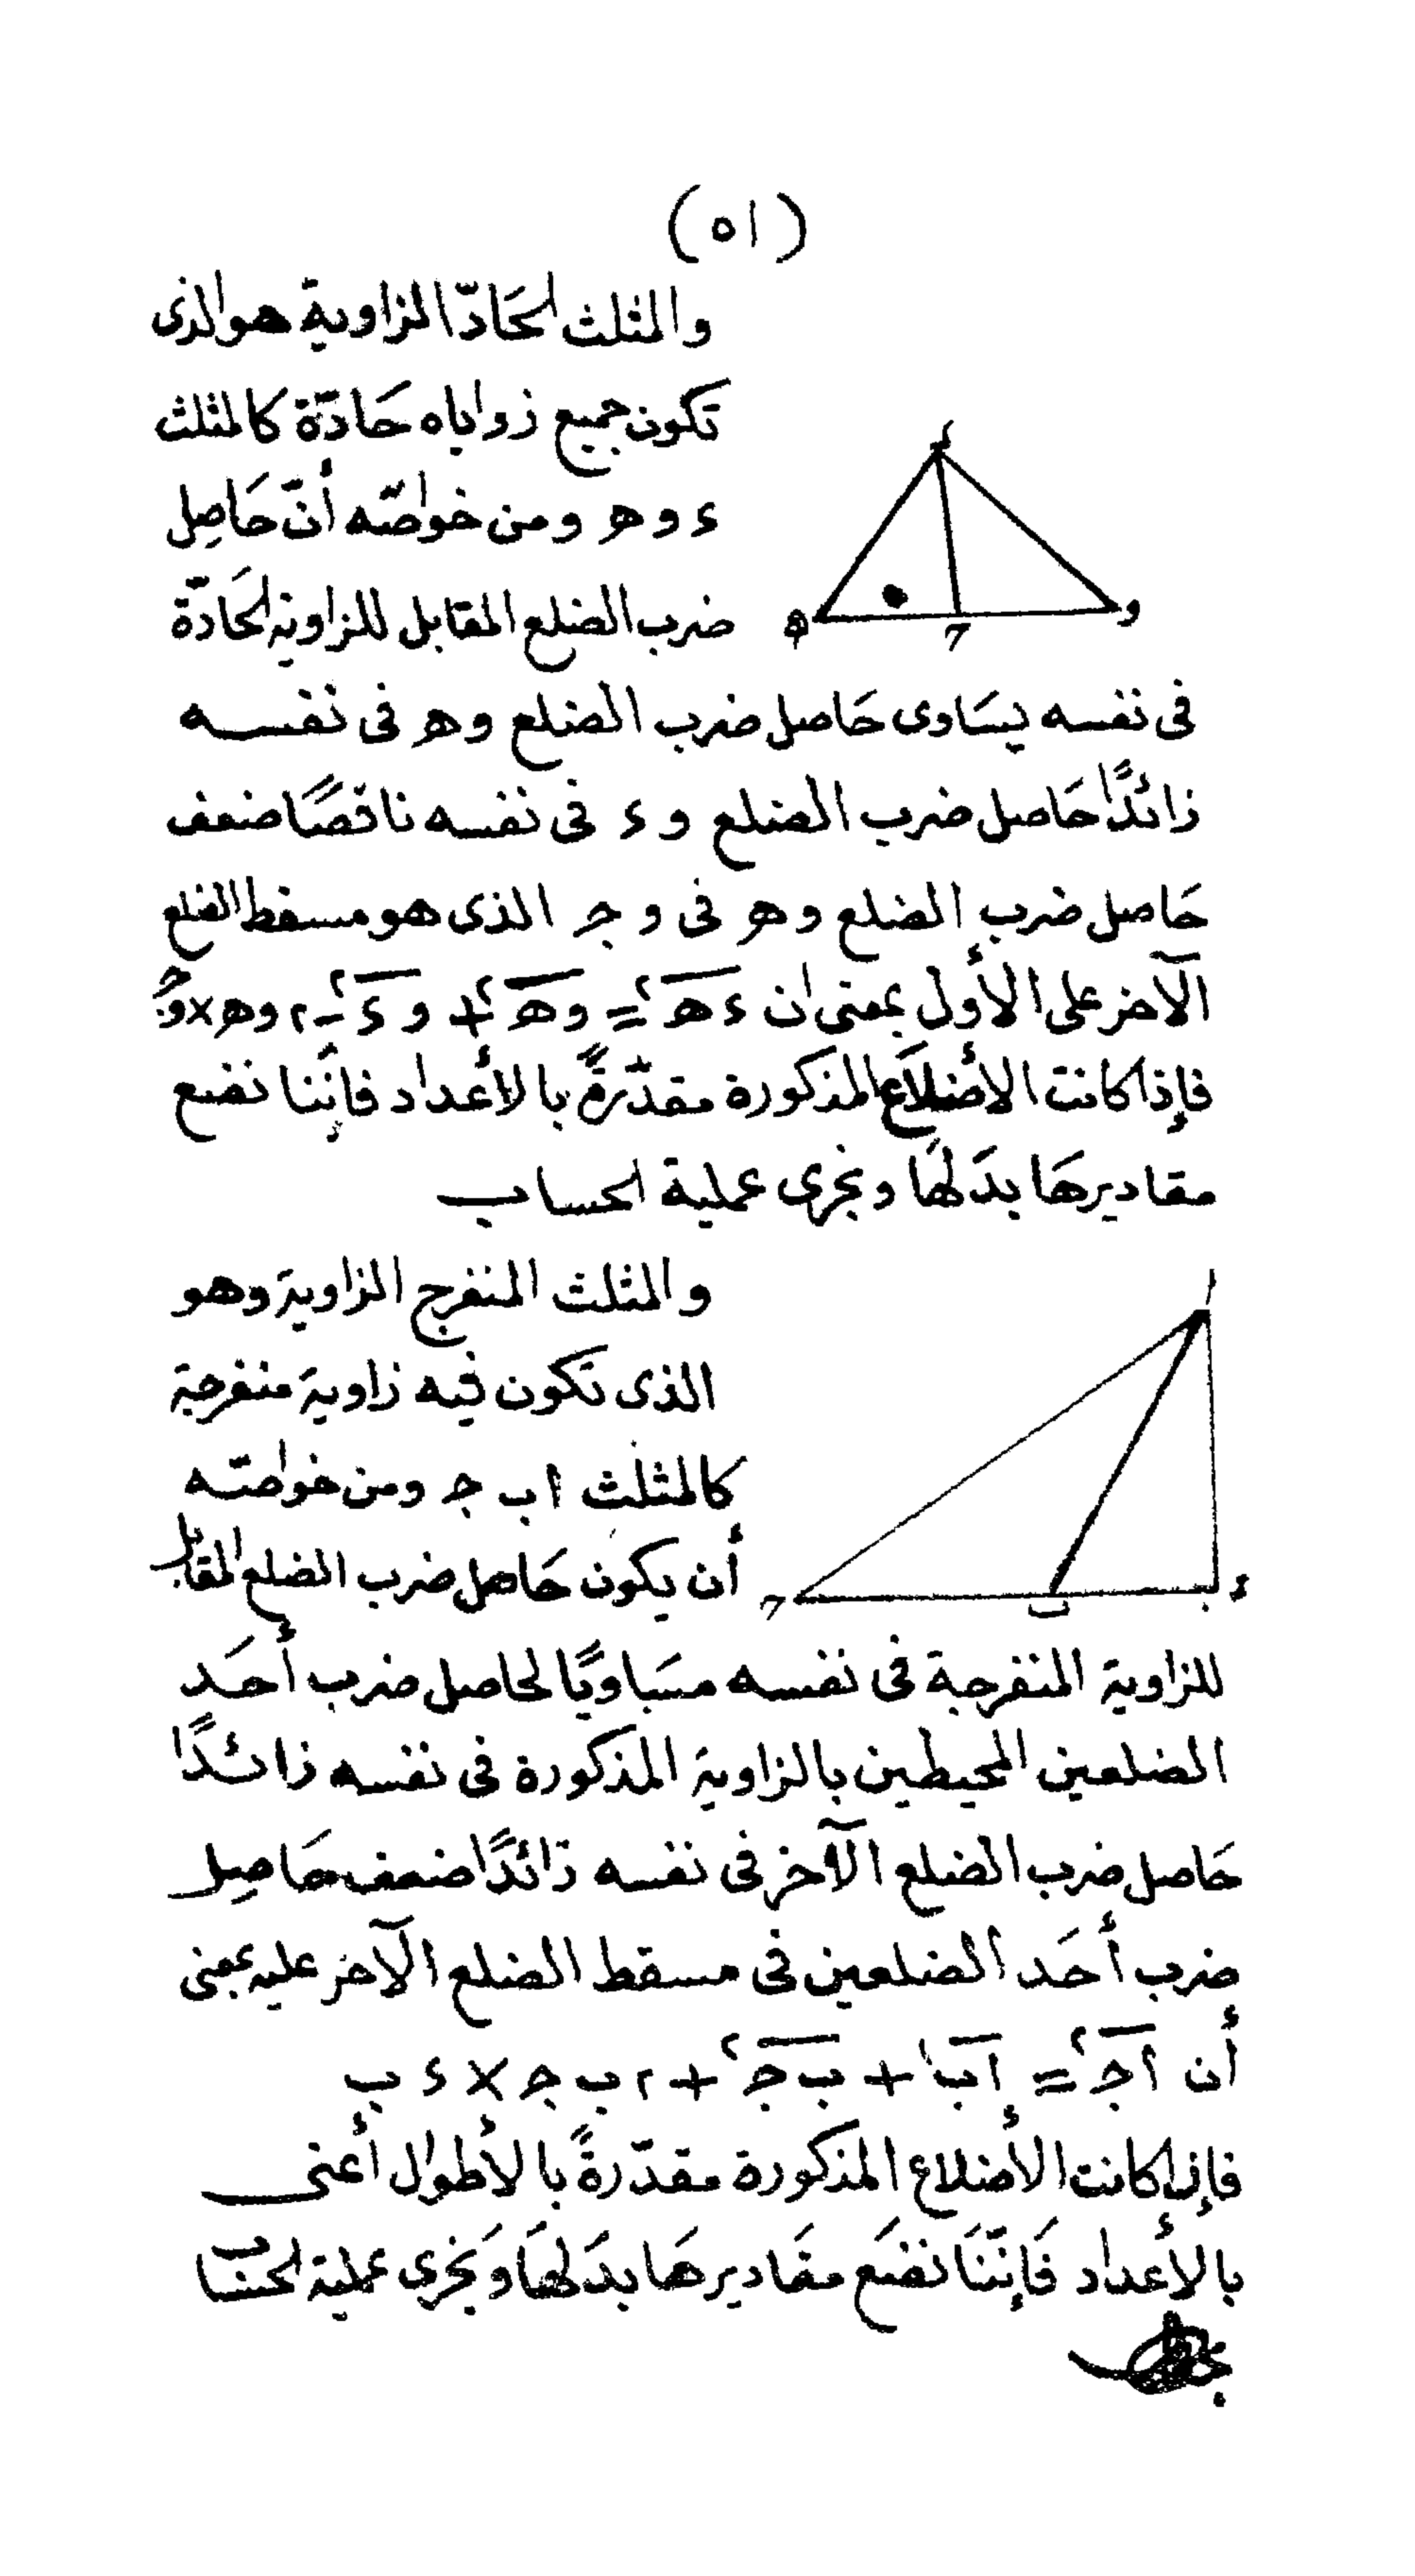 (٥١)
والمثلث الحَادّ الزاوية هو الذى
تكون جميع زواياه حَادّة كالمثلث
ء و ه ومن خواصّه أنّ حَاصِل
ضرب الضلع المقابل للزاوية الحَادّة
فى نفسه يسَاوى حَاصل ضرب الضلع و ه فى نفسه
زائدًا حَاصل ضرب الضلع و ء فى نفسه ناقصًا ضعف
حَاصل ضرب الضلع و ه فى و ج الذى هو مسقط الضلع
الآخر على الأول بمعنى ان ء ه٢ = و ه٢ + و ء٢ - ٢ و ه × و ج
فإذا كانت الأضلاع المذكورة مقدّرةً بالأعداد فإنَنا نضع
مقاديرهَا بدَلهَا ونجرى عملية الحساب
والمثلث المنفرج الزاوية وهو
الذى تكون فيه زاوية منفرجة
كالمثلث ا ب ج ومن خواصّه
أن يكون حَاصل ضرب الضلع المقابل
للزاوية المنفرجة فى نفسه مسَاويًا لحاصل ضرب أحَد
الضلعين المحيطين بالزاوية المذكورة فى نفسه زائدًا
حَاصل ضرب الضلع الآخر فى نفسه زائدًا ضعف حَاصِل
ضرب أحَد الضلعين فى مسقط الضلع الآخر عليه بمعنى
أن ا ج٢ = ا ب٢ + ب ج٢ + ٢ ب ج × ء ب
فإذا كانت الأضلاع المذكورة مقدّرةً بالأطوال أعنى
بالأعداد فَإنّنَا نضَع مقَاديرهَا بدَلهَا وَنجرى عملية الحسَاب
ء
ه
ج
و
ا
ج
ب
ء